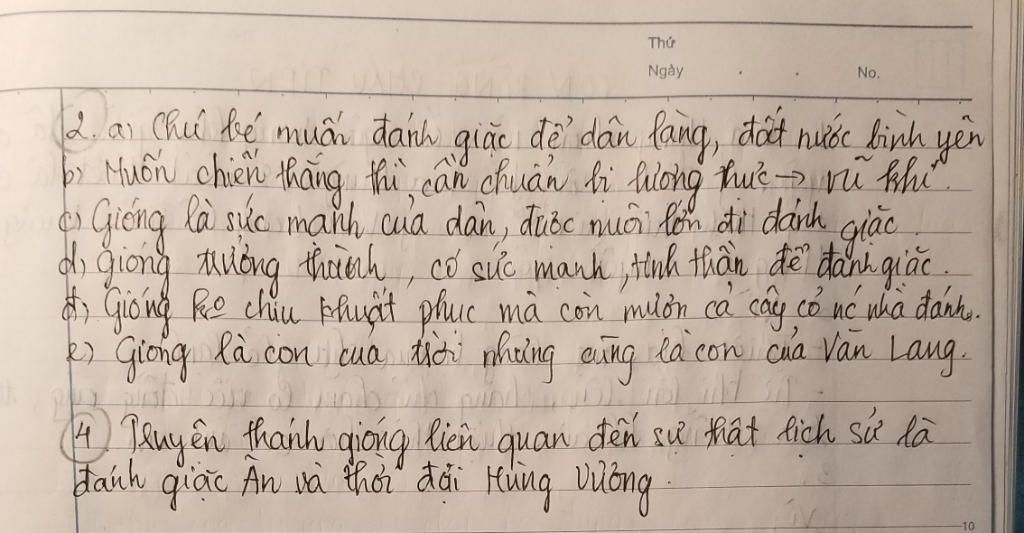 Thứ
Ngày . . No.
2. a) Chú bé muốn đánh giặc để dân làng, đất nước bình yên
b) Muốn chiến thắng thì cần chuẩn bị lương thực → vũ khí.
c) Gióng là sức mạnh của dân, được nuôi lớn đi đánh giặc.
d) Gióng trưởng thành, có sức mạnh, tinh thần để đánh giặc.
đ) Gióng ko chịu khuất phục mà còn mượn cả cây cỏ nc nhà đánh.
e) Gióng là con của trời nhưng cũng là con của Văn Lang.
4 Truyện thánh gióng liên quan đến sự thật lịch sử là
đánh giặc Ân và thời đại Hùng Vương.
10